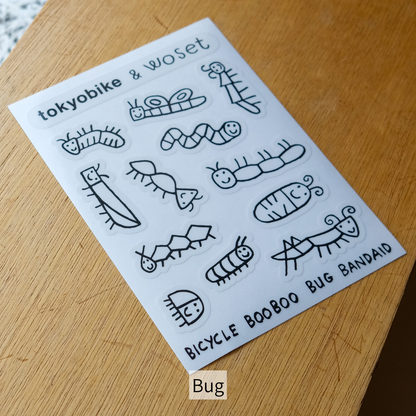 tokyobike & woset
BICYCLE BOOBOO BUG BANDAID
Bug